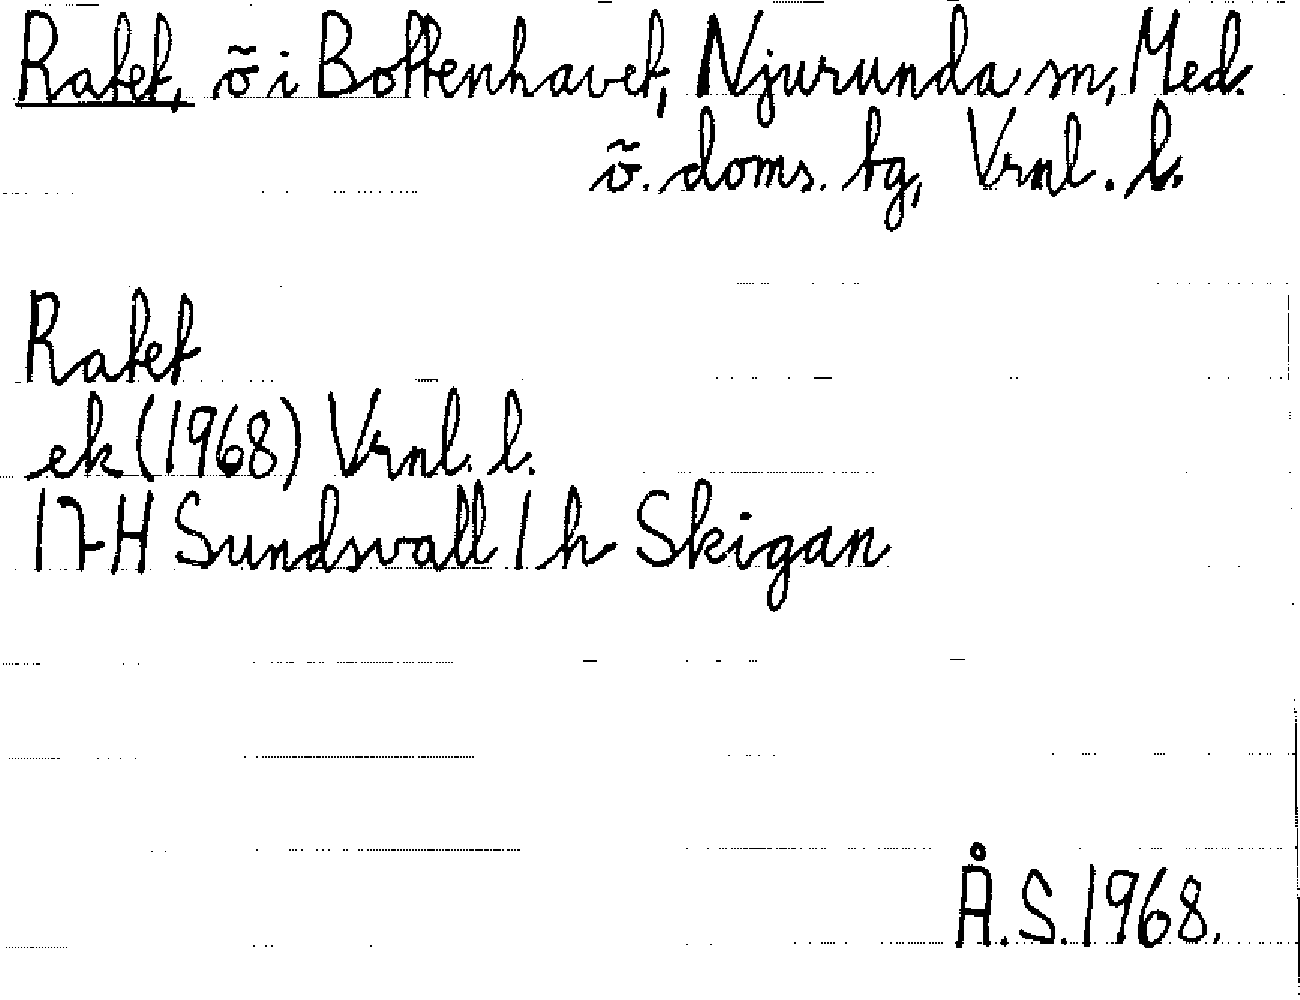 Ratet, õ i Bottenhavet, Njurunda sn, Med.
õ. doms. tg, Vrnl. l.
Ratet
ek (1968) Vrnl. l.
17H Sundsvall 1 h Skigan
Å.S. 1968.